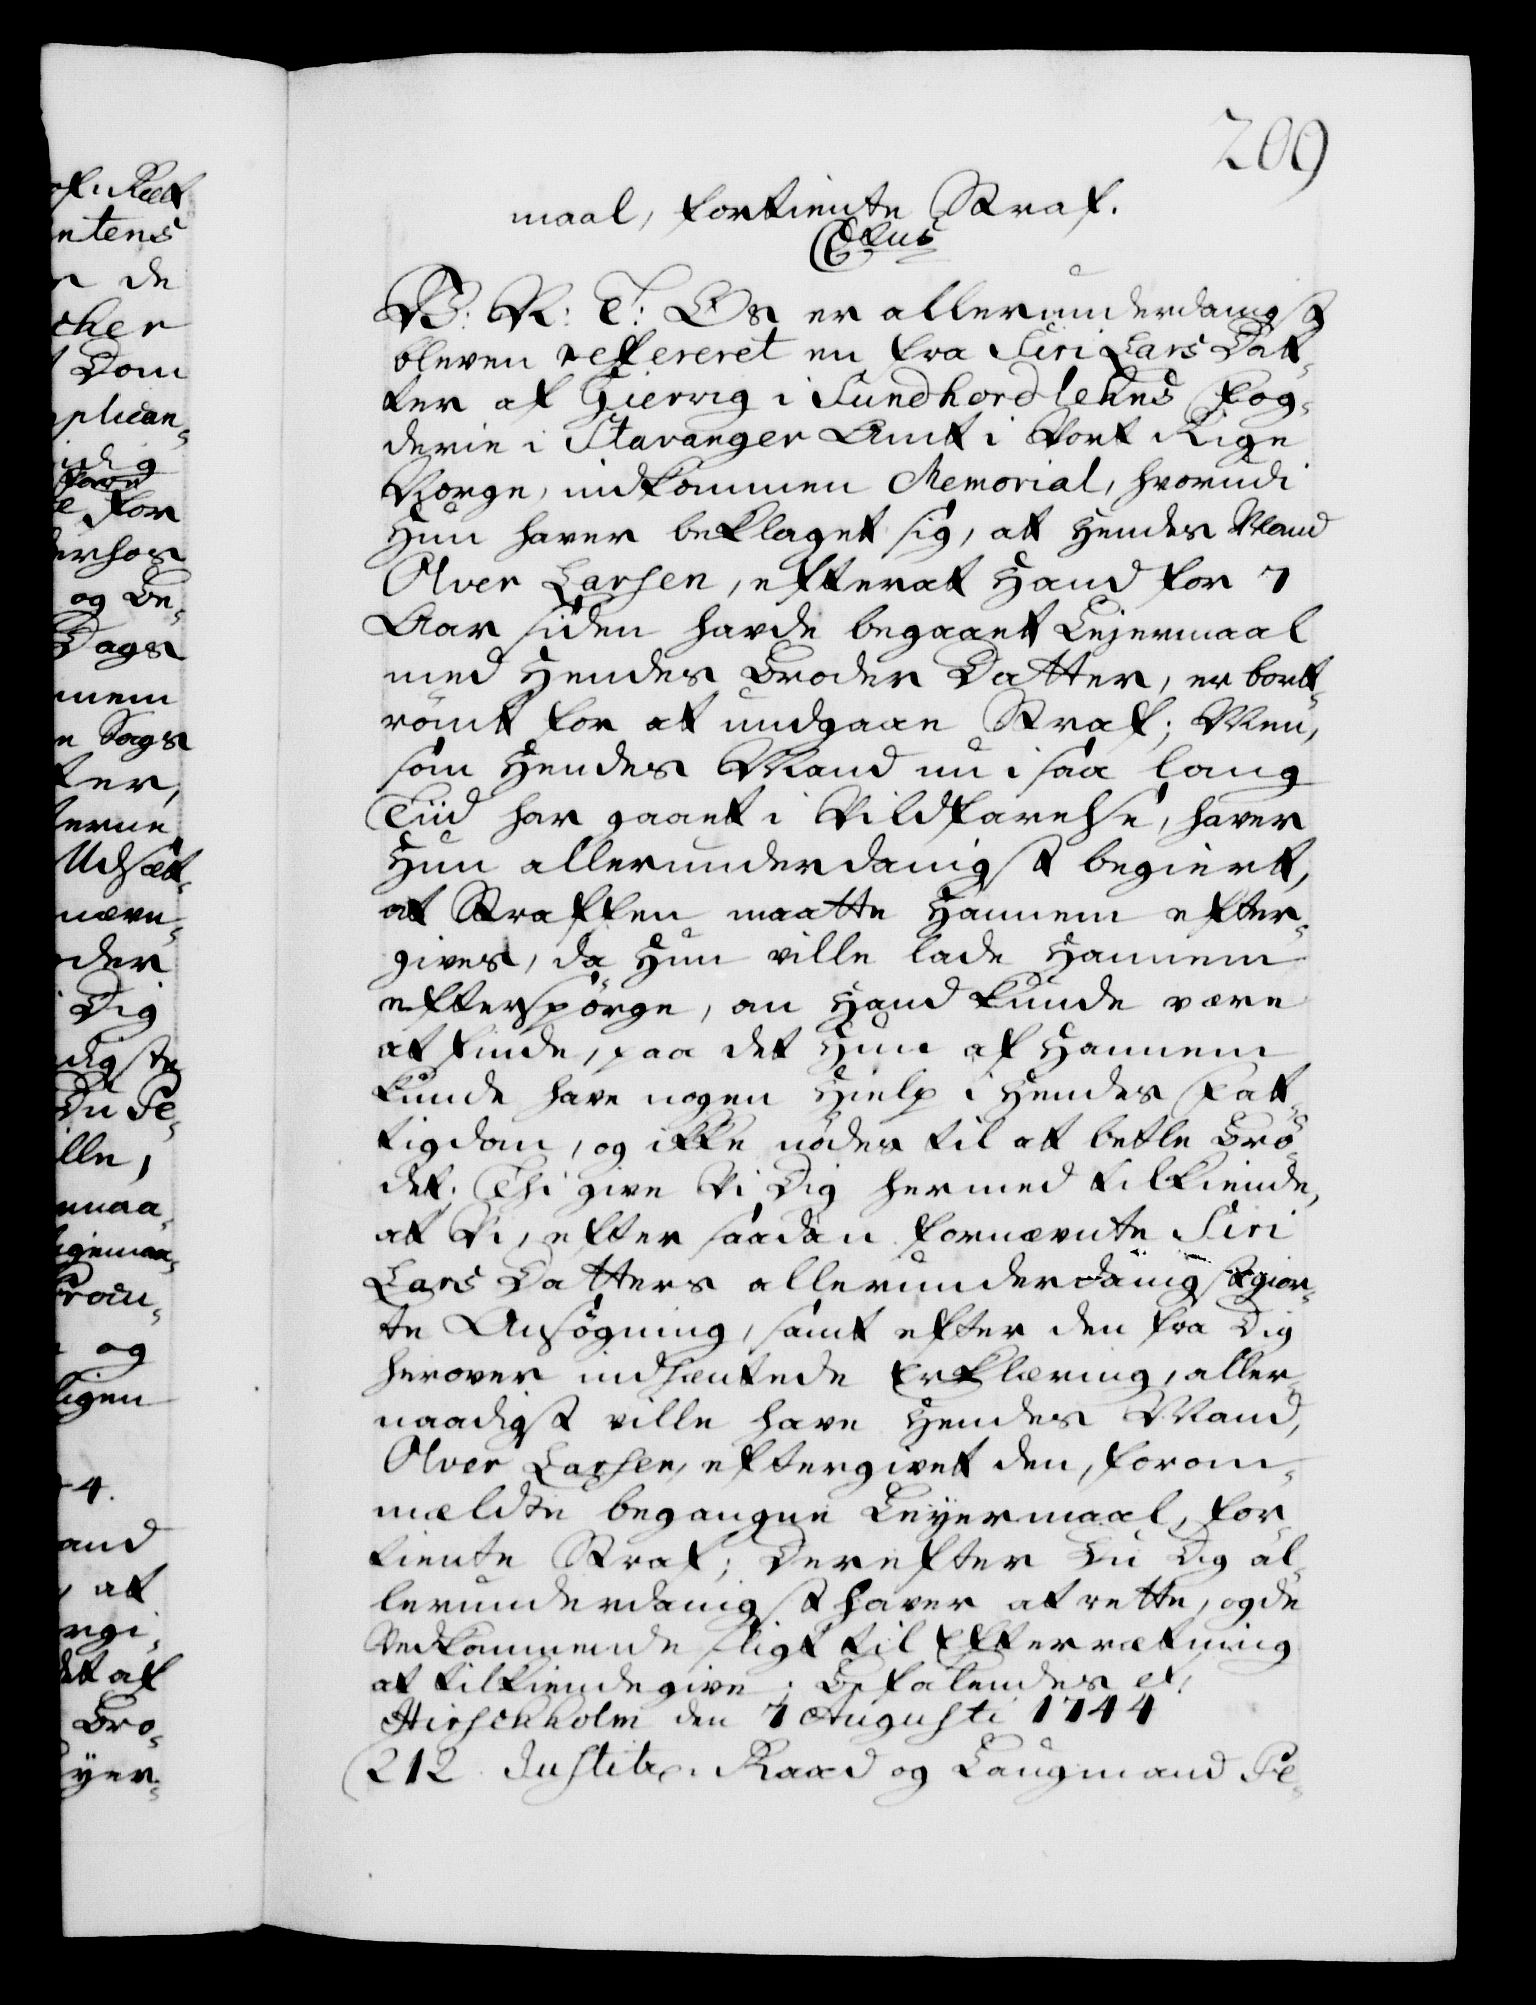 209
maal, fortiente Straf.
C6tus
V: V: T: Os er allerunderdanigst
bleven refereret en fra Siri Lars Dat¬
ter af Gierrig i Sundhordlehns Fog¬
derie i Stavanger Amt i Vort Rige
Norge, indkommen Memorial, hvorudi
Hun haver beklaget sig, at Hendes Mand
Olver Larsen, efterat Hand for 7
Aar siden havde begaaet Lejermaal
med Hendes Broder Datter, er bort¬
römt for at undgaae Straf; Men,
som Hendes Mand nu i saa lang
Tiid har gaaet i Vildfarelse, haver
Hun allerunderdanigst begiert,
at Straffen maatte Hannem efter¬
gives, da Hun ville lade Hannem
efterspörge, om Hand kunde være
at finde, paa det Hun af Hannem
kunde have nogen Hielp i Hendes Fat¬
tigdom, og ikke nödes til at betle Brö¬
det; Thi give Vi Dig hermed tilkiende,
at Vi, efter saadan fornævnte Siri
Lars Datters allerunderdanigst gior¬
te Ansögning, samt efter den fra Dig
herover indhæntede Erklæring, aller¬
naadigst ville have Hendes Mand,
Olver Larsen, eftergivet den, forom¬
mældte begangne Leyermaal, for
tiente Straf; Derefter Du Dig al¬
lerunderdanigst haver at rette, og de
Vedkommende sligt til Efterretning
at tilkiendegive; Befalendes etc
Hirschholm den 7 Augusti 1744
212. Justitz. Raad og Laugmand Pe¬